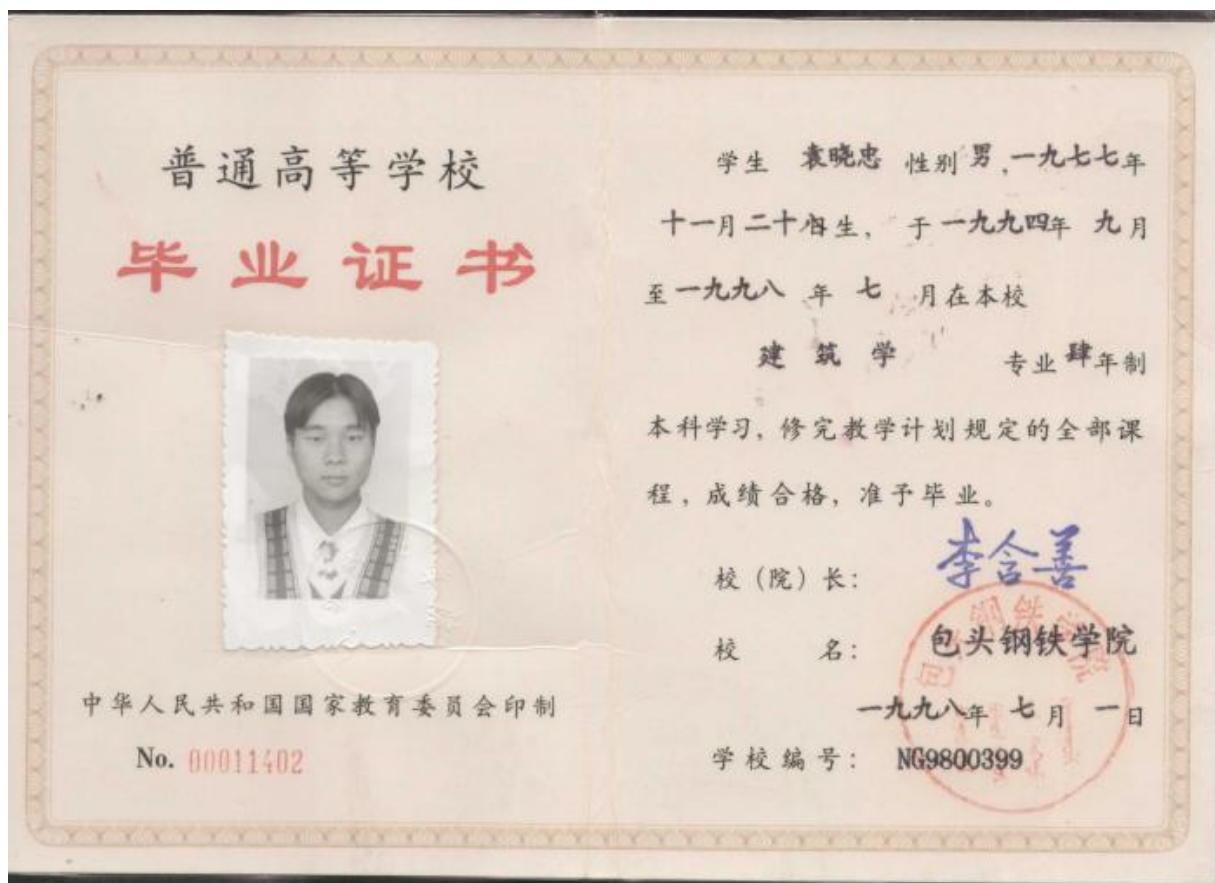 普通高等学校
毕业证书
中华人民共和国国家教育委员会印制
No. 00011402
学生 袁晓忠 性别 男,一九七七年
十一月二十 生, 于一九九四年 九月
至一九九八 年 七 月在本校
建 筑 学 专业 肆年制
本科学习, 修完教学计划规定的全部课
程, 成绩合格, 准予毕业。
校(院)长: 李含善
校 名: 包头钢铁学院
一九九八年 七月 一日
学校编号: NG9800399
包头钢铁学院